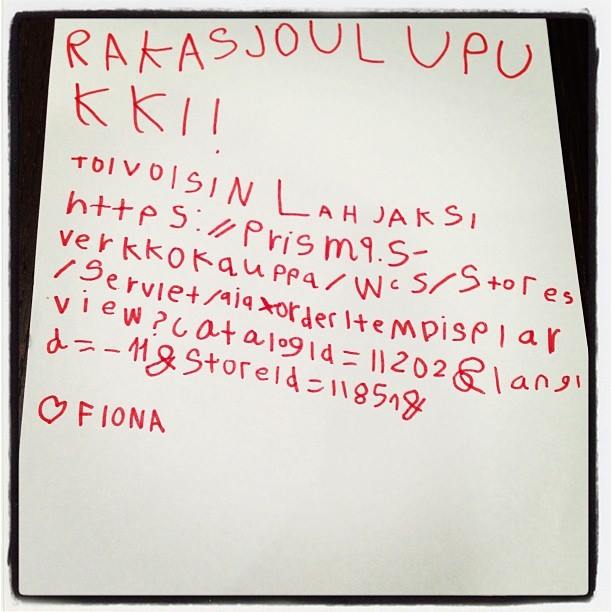 RAKASJOULUPU
KKI!
TOIVOISIN LAHJAKSI
https://Prismq.s-
verkkokauppa/wcs/Stores
/Servlet/aiaxorderItemDisplar
view?CatalogId=11202&langI
d=-11&StoreId=11851&
♡ FIONA